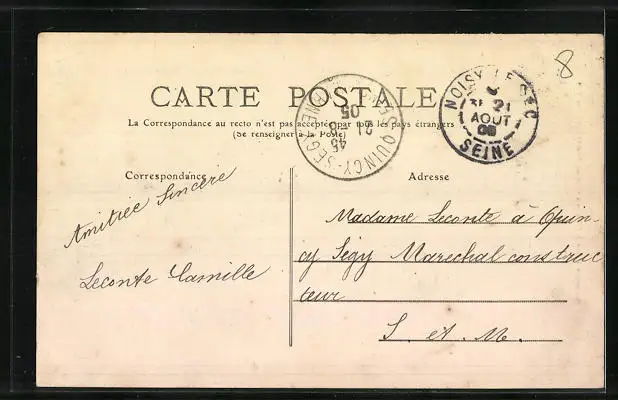 8
CARTE POSTALE
La Correspondance au recto n'est pas acceptée par tous les pays étrangers
(Se renseigner à la Poste)
QUINCY-SEGY
21 -8
05
NOISY LE SEC
21
AOUT
SEINE
Correspondance
Adresse
Amitiée Sincère
Leconte Camille
Madame Leconte à Quin-
cy Ségy Marechal construc
teur
S. et M.